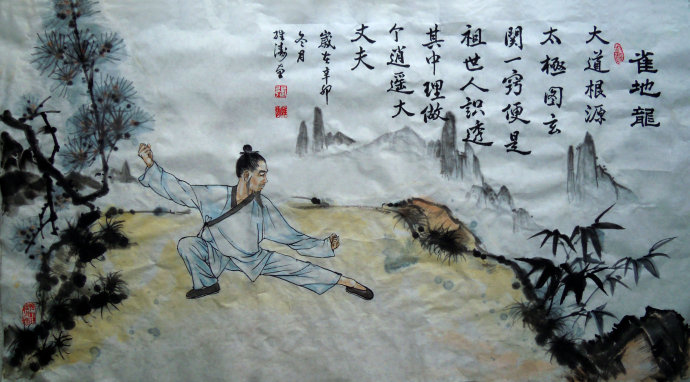 雀地龍
大道根源
太極圖玄
関一竅便是
祖世人識透
其中理做
个逍遥大
丈夫
歲在辛卯
冬月